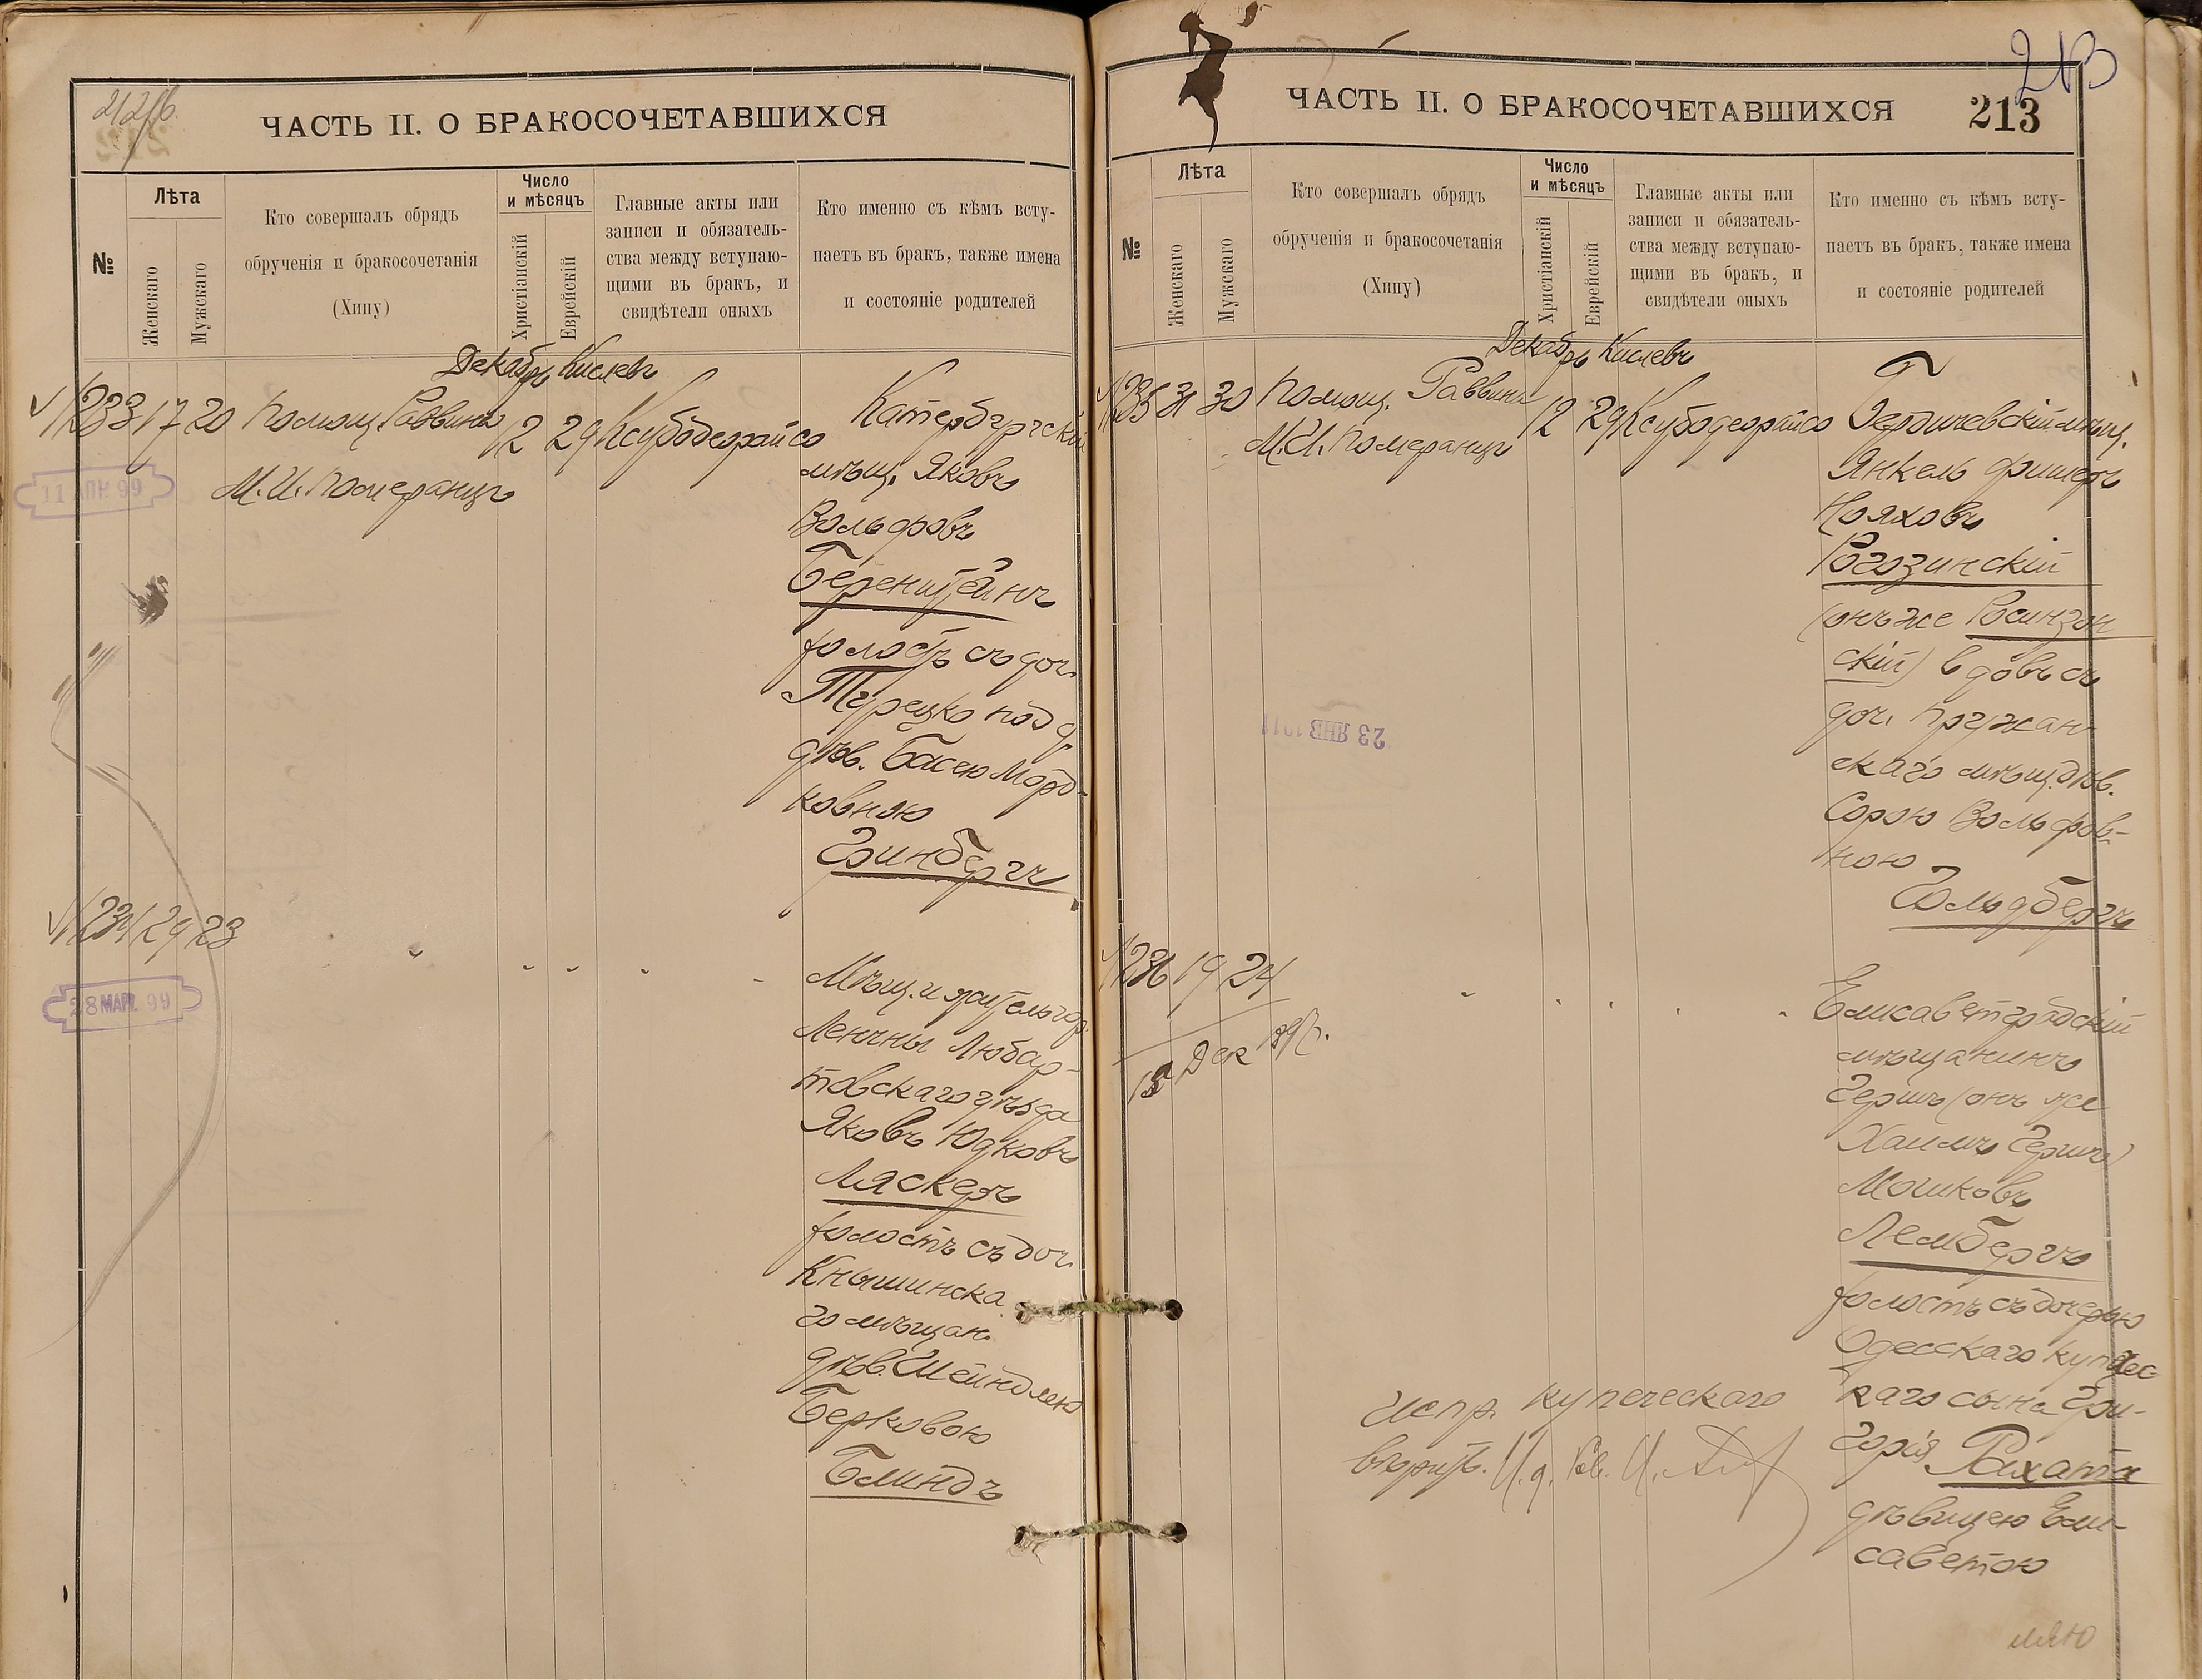 212об.
ЧАСТЬ II. О БРАКОСОЧЕТАВШИХСЯ
№
Лѣта
Женскаго
Мужскаго
Кто совершалъ обрядъ
обрученія и бракосочетанія
(Хипу)
Число
и мѣсяцъ
Христіанскій
Еврейскій
Главные акты или
записи и обязатель-
ства между вступаю-
щими въ бракъ, и
свидѣтели оныхъ
Кто именно съ кѣмъ всту-
паетъ въ бракъ, также имена
и состояніе родителей
Декабрь Кислевъ
233 17 20 Помощ. Раввина 12 29 Ксубодеорайсо
М. И. Померанцъ
11 АПР. 99
Катербургскій
мѣщ. Яковъ
Вольфовъ
Беренштейнъ
холостъ съ доч.
Турецко под д.
дѣв. Басею Морд-
ковною
Гринбергъ
234 29 23 " " " " "
28 МАР. 99
Мѣщ. и житель гор.
Ленчны Любар-
товскаго уѣзда
Яковъ Юдковъ
Ляскеръ
холостъ съ доч.
Кнышинска
го мѣщан.
дѣв. Шейндлею
Берковою
Блиндъ
213
ЧАСТЬ II. О БРАКОСОЧЕТАВШИХСЯ
213
№
Лѣта
Женскаго
Мужскаго
Кто совершалъ обрядъ
обрученія и бракосочетанія
(Хипу)
Число
и мѣсяцъ
Христіанскій
Еврейскій
Главные акты или
записи и обязатель-
ства между вступаю-
щими въ бракъ, и
свидѣтели оныхъ
Кто именно съ кѣмъ всту-
паетъ въ бракъ, также имена
и состояніе родителей
Декабрь Кислевъ
235 31 30 Помощ. Раввина 12 29 Ксубодеорайсо
М. И. Померанцъ
23 ЯНВ 1911
Бердичевскій мѣщ.
Янкель Фишель
Нояховъ
Рогозинскій
(онъ же Росинзон
скій) вдовъ съ
доч. Пружан
скаго мѣщ. дѣв.
Сорою Вольфов-
ною
Гольдбергъ
236 19 24 " " " " "
13 Дек 97 г.
Елисаветградскій
мѣщанинъ
Гершъ (онъ же
Хаимъ Гершъ)
Мошковъ
Лембергъ
холостъ съ дочерью
Одесскаго купчес-
каго сына Гри-
горія Рахата
дѣвицею Ели-
саветою
испр. купеческаго
вѣрить. И. д. Рав. И.